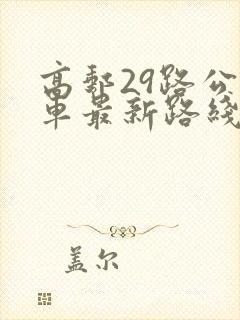 高郵29路公
車最新路綫
盖尔